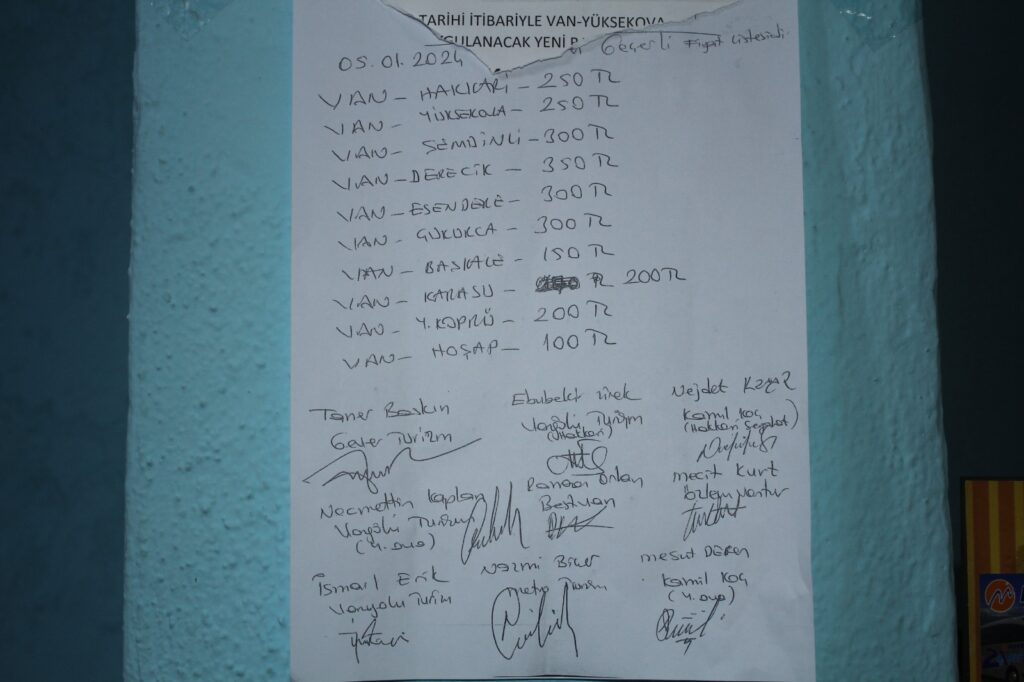 TARİHİ İTİBARİYLE VAN-YÜKSEKOVA
UYGULANACAK YENİ
05.01.2024 Geçerli Fiyat Listesidir.
VAN - HAKKARİ - 250 TL
VAN - YÜKSEKOVA - 250 TL
VAN - ŞEMDİNLİ - 300 TL
VAN - DERECİK - 350 TL
VAN - ESENDERE - 300 TL
VAN - ÇUKURCA - 300 TL
VAN - BAŞKALE - 150 TL
VAN - KARASU - TL 200 TL
VAN - Y.KÖPRÜ - 200 TL
VAN - HOŞAP - 100 TL
Taner Baskın
Gever Turizm
Ebubekir
Vangölü Turizm
(Hakkari)
Nejdet
Kamil Koç
(Hakkari Seyahat)
Necmettin Kaplan
Vangölü Turizm
(Y.ova)
Ramazan Orhan
Bestvan
Mecit Kurt
İsmail Erik
Vanyolu Turizm
Nazmi
Metro Turizm
Mesut DEREN
Kamil Koç
(Y.ova)